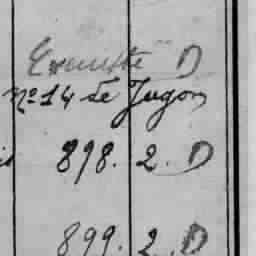 Exempté D
nº 14 de Jugon
898. 2. D
899. 2. D